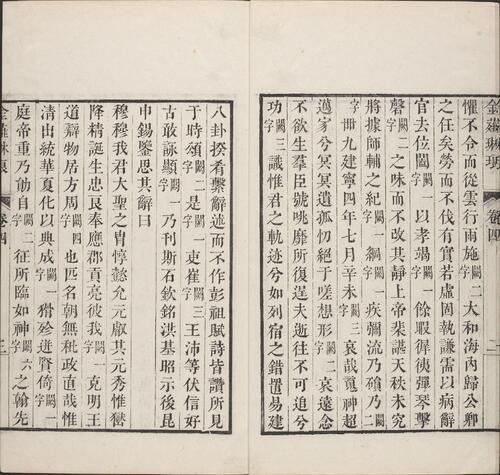 金薤琳琅 卷四 二
惟不令而從雲行雨施闕二字大和海內歸公卿
之任矣勞而不伐有實若虛固執謙需以病辭
官去位闔闕一字以孝竭闕一字餘暇徘徊彈琴擊
磬闕二字之味而不改其靜上帝棐諶天秩未究
將據師輔之紀闕一字綱闕一字疾彌流乃磒乃闕二
字卌九建寧四年七月辛未闕三字哀哉魂神超
邁家兮冥冥遺孤忉絕于嗟想形闕二字哀遠念
不欲生羣臣號咷靡所復逞夫逝往不可追兮
功闕三字讖惟君之軌迹兮如列宿之錯置易建
八卦揆肴繫辭述而不作彭祖賦詩皆讚所見
于時頌闕二字是闕一字吏崔闕三字王沛等伏信好
古敢詠顯闕一字乃刊斯石欽銘洪基昭示後昆
申錫鑒思其辭曰
穆穆我君大聖之胄惇懿允元叡其元秀惟嶽
降精誕生忠良奉應郡貢亮彼我闕一字克明王
道辯物居方周闕四字也匹名朝無秕政直哉惟
清出統華夏化以典成闕一字獝殄迸賢倚闕一字
庭帝重乃勛自闕二字征所臨如神闕六字之翰先
金薤琳琅 卷四 三